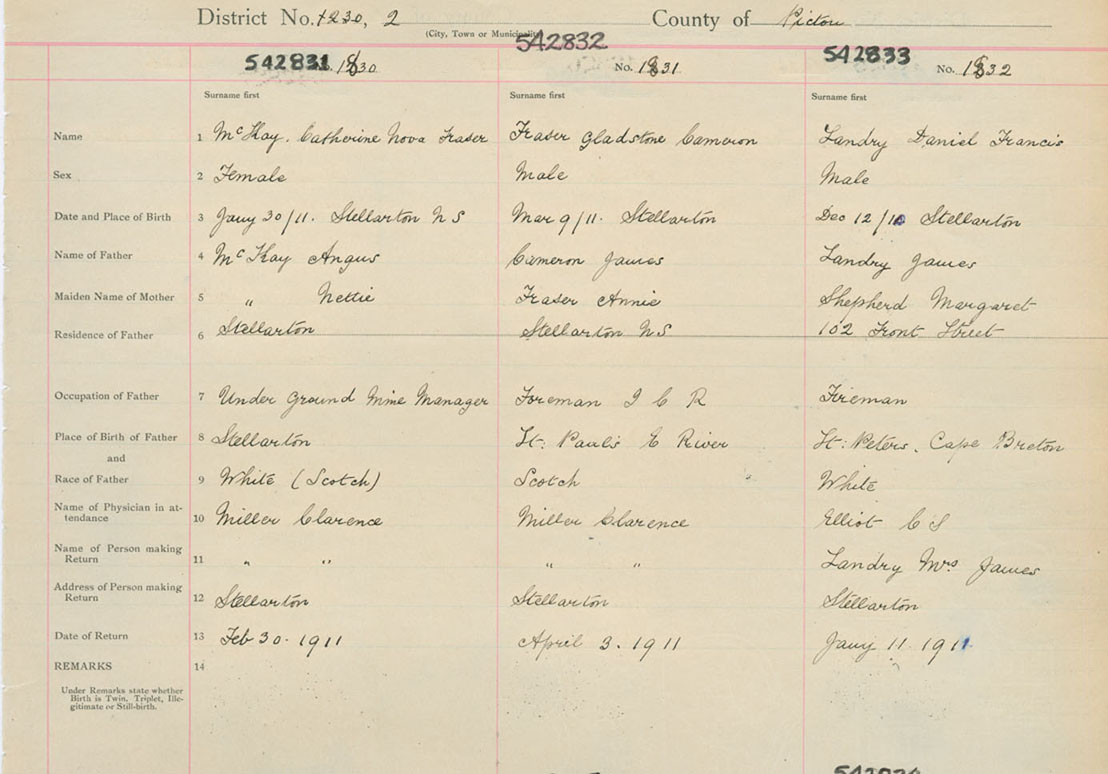 District No. 1230, 2 County of Pictou
(City, Town or Municipality)
542831 542832 542833
No. 1830 No. 1831 No. 1832
Surname first Surname first Surname first
Name 1 McKay. Catherine Nova Fraser Fraser Gladstone Cameron Landry Daniel Francis
Sex 2 Female Male Male
Date and Place of Birth 3 Jany 30/11. Stellarton N S Mar 9/11. Stellarton Dec 12/10 Stellarton
Name of Father 4 McKay Angus Cameron James Landry James
Maiden Name of Mother 5 " Nettie Fraser Annie Shepherd Margaret
Residence of Father 6 Stellarton Stellarton N S 102 Front Street
Occupation of Father 7 Under Ground Mine Manager Foreman I C R Fireman
Place of Birth of Father 8 Stellarton St: Pauls E River St: Peters. Cape Breton
and
Race of Father 9 White (Scotch) Scotch White
Name of Physician in at-
tendance 10 Miller Clarence Miller Clarence Elliot C S
Name of Person making
Return 11 " " " " Landry Mrs James
Address of Person making
Return 12 Stellarton Stellarton Stellarton
Date of Return 13 Feb 30. 1911 April 3. 1911 Jany 11 1911
REMARKS 14
Under Remarks state whether
Birth is Twin, Triplet, Ille-
gitimate or Still-birth.